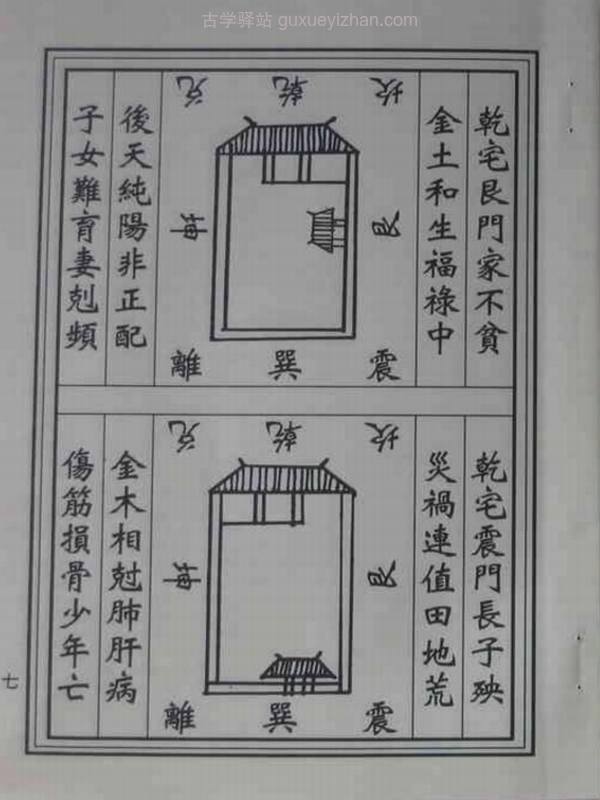 古学驿站 guxueyizhan.com
乾宅艮門家不貧
金土和生福祿中
兑 乾 坎
坤 艮
離 巽 震
後天純陽非正配
子女難育妻剋頻
乾宅震門長子殃
災禍連值田地荒
兑 乾 坎
坤 艮
離 巽 震
金木相尅肺肝病
傷筋損骨少年亡
七